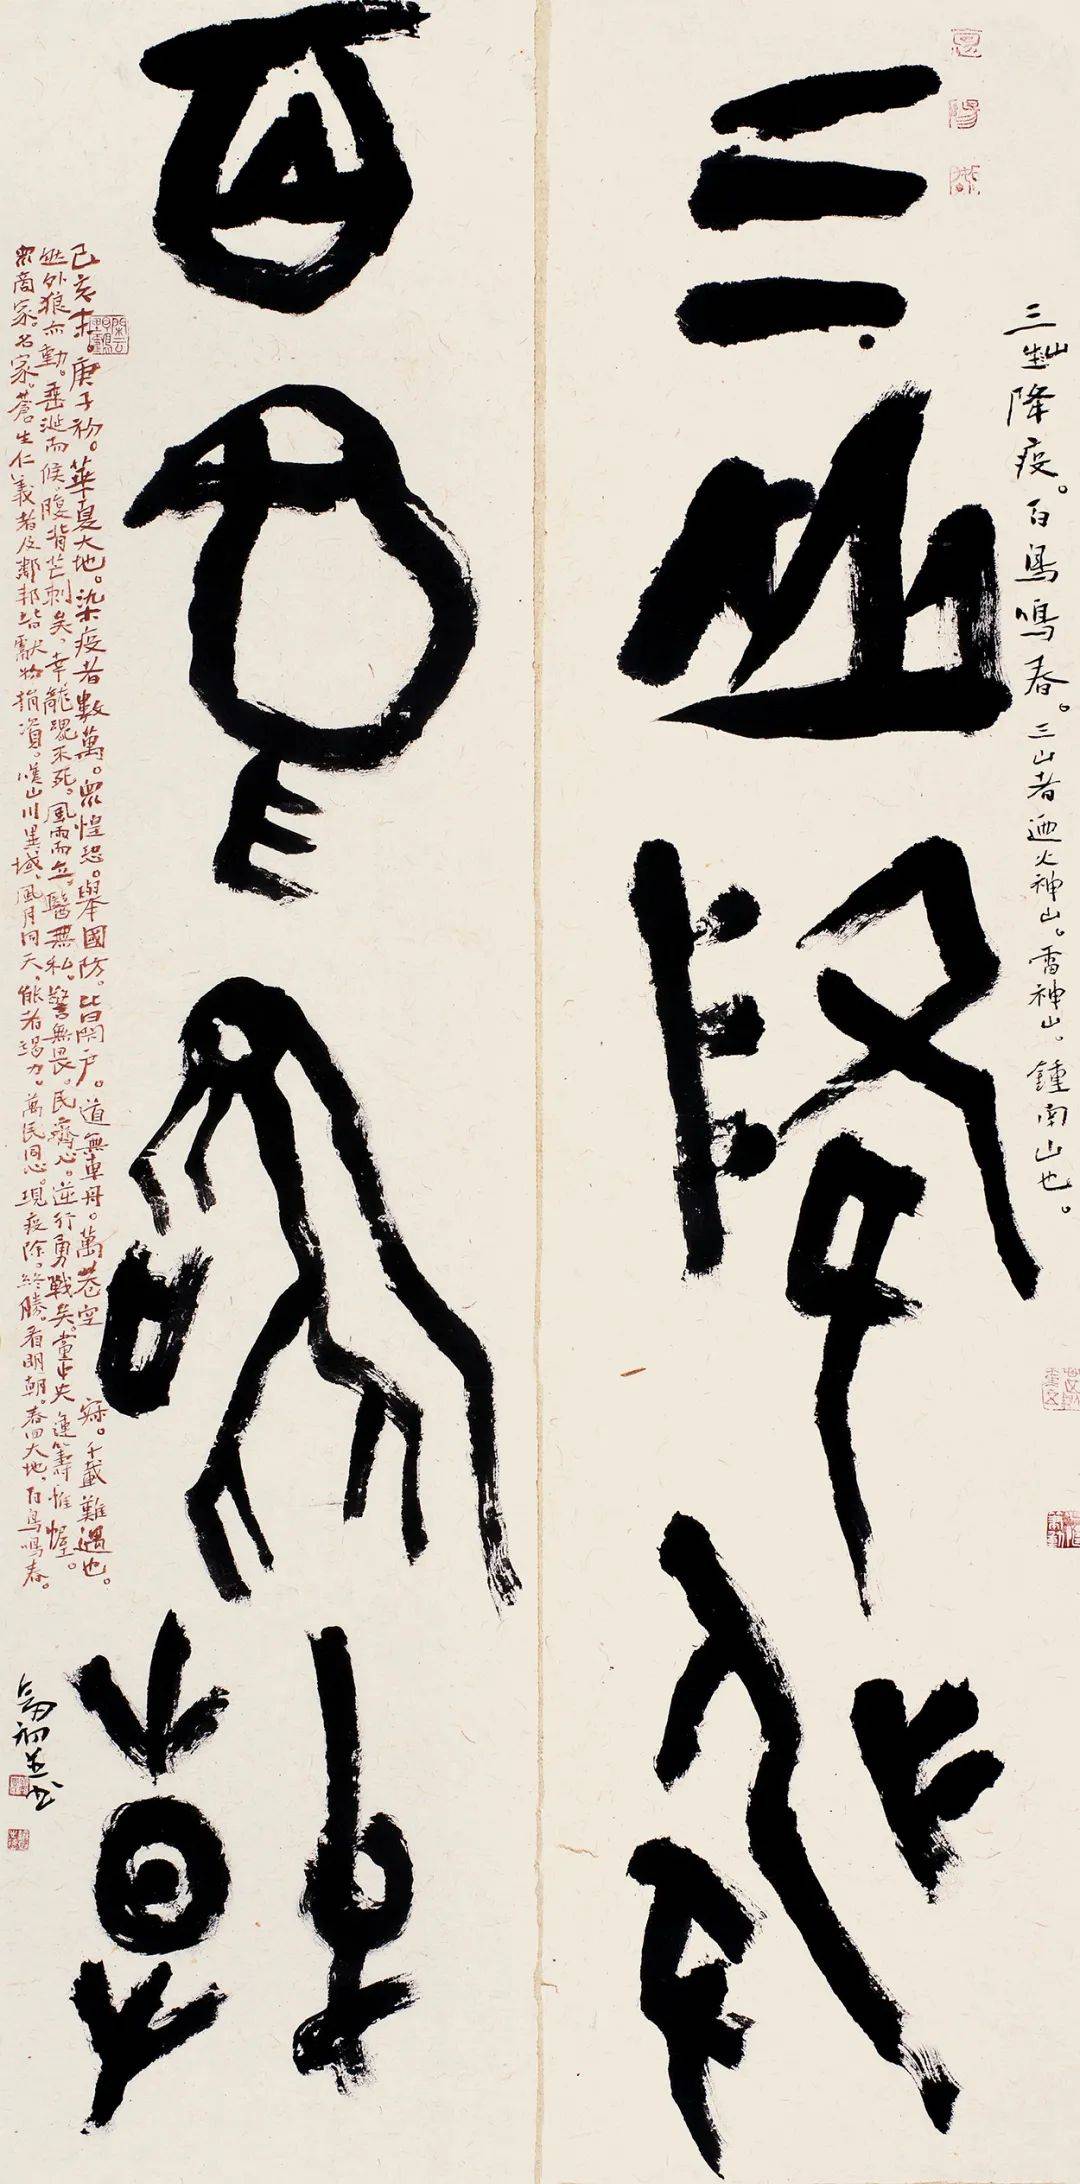 三山降疫
百鳥鳴春
三山降疫。百鳥鳴春。三山者迺火神山。雷神山。鍾南山也。
己亥末。庚子初。華夏大地。染疫者數萬。眾惶恐。舉國防。皆閉户。道無車舟。萬巷空 寂。千載難遇也。
然外狼亦動。垂涎而候，腹背芒刺矣，幸龍罷不死。風雨而立。醫無私。警無畏。民齊心。逆行勇戰矣。黨中央 運籌惟幄。
眾商家。名家。蒼生仁義者及鄰邦皆獻物捐資。嘆山川異域，風月同天。能者竭力。萬民同心。現疫除。終勝。看明朝。春回大地，百鳥鳴春。